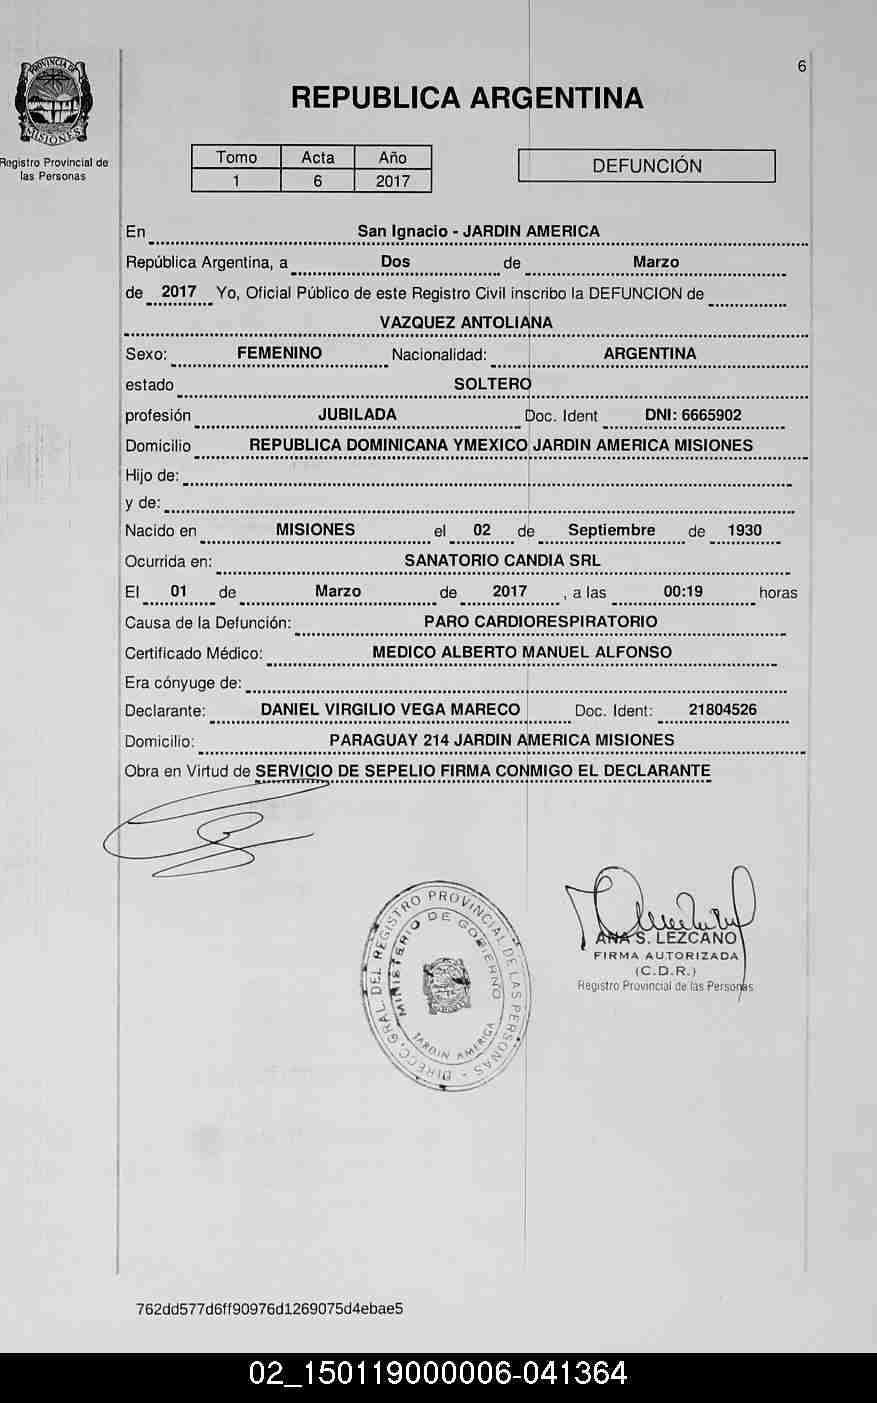 6
PROVINCIA DE
MISIONES
Registro Provincial de
las Personas
REPUBLICA ARGENTINA
Tomo Acta Año
1 6 2017
DEFUNCIÓN
En San Ignacio - JARDIN AMERICA
República Argentina, a Dos de Marzo
de 2017 Yo, Oficial Público de este Registro Civil inscribo la DEFUNCION de
VAZQUEZ ANTOLIANA
Sexo: FEMENINO Nacionalidad: ARGENTINA
estado SOLTERO
profesión JUBILADA Doc. Ident DNI: 6665902
Domicilio REPUBLICA DOMINICANA YMEXICO JARDIN AMERICA MISIONES
Hijo de:
y de:
Nacido en MISIONES el 02 de Septiembre de 1930
Ocurrida en: SANATORIO CANDIA SRL
El 01 de Marzo de 2017 , a las 00:19 horas
Causa de la Defunción: PARO CARDIORESPIRATORIO
Certificado Médico: MEDICO ALBERTO MANUEL ALFONSO
Era cónyuge de:
Declarante: DANIEL VIRGILIO VEGA MARECO Doc. Ident: 21804526
Domicilio: PARAGUAY 214 JARDIN AMERICA MISIONES
Obra en Virtud de SERVICIO DE SEPELIO FIRMA CONMIGO EL DECLARANTE
DIRECC. GRAL. DEL REGISTRO PROVINCIAL DE LAS PERSONAS
MINISTERIO DE GOBIERNO
JARDIN AMERICA
ANA S. LEZCANO
FIRMA AUTORIZADA
(C.D.R.)
Registro Provincial de las Personas
762dd577d6ff90976d1269075d4ebae5
02_150119000006-041364